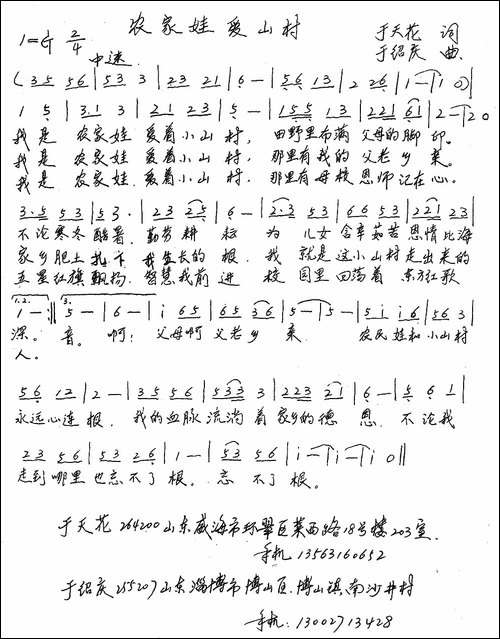 农家娃爱山村
1=G 2/4 于天花 词
中速 于绍庆 曲
(35 56|53 3|23 21|6-|56 13|2 26|1-|1 0)|
1 5|31 3|21 23|5-|155 13|221 61|2-|20
我是 农家娃 爱着小山村, 田野里布满 父母的脚印。
我是 农家娃 爱着小山村, 那里有我的 父老乡亲。
我是 农家娃 爱着小山村, 那里有母校 恩师记在心。
3·5 53|53·|23 25|6-|2·3 53|66 53|221 23|
不论寒冬酷暑, 勤劳耕耘 为儿女含辛茹苦 恩情比海
家乡肥土扎下 我生长的根, 我就是这小山村走出来的
五星红旗飘扬, 智慧我前进 校园里回荡着 东方红歌
1.2. 3.
1-:‖5-|6-|i 65|65 36|5-|5-|5i i6|56 3|
深。 音。 啊! 父母啊 父老乡亲 农民娃和小山村
人。
56 12|2-|35 56|533 3|223 21|6-|5 61|
永远心连根, 我的血脉流淌着家乡的德恩, 不论我
23 56|53 26|1-|53 56|i-|i-|i 0‖
走到哪里也忘不了根。忘不了根。
于天花 264200 山东威海市环翠区莱西路18号楼203室
手机 13563160652
于绍庆 255207 山东淄博市博山区、博山镇、南沙井村
手机: 13002713428